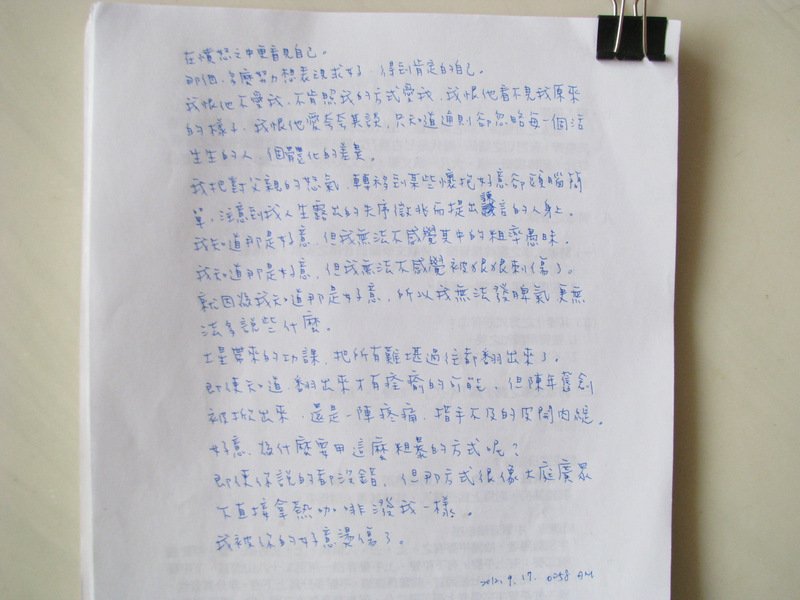 在憤怒之中更看見自己。
那個,多麼努力想表現求好,得到肯定的自己。
我恨他不愛我,不肯照我的方式愛我,我恨他看不見我原來
的樣子,我恨他愛夸夸其談,只知道通則卻忽略每一個活
生生的人,個體化的差異。
我把對父親的怒氣,轉移到某些懷抱好意卻頭腦簡
單,注意到我人生露出的失序徵兆而提出諫言的人身上。
我知道那是好意,但我無法不感覺其中的粗率愚昧,
我知道那是好意,但我無法不感覺被狠狠刺傷了。
就因為我知道那是好意,所以我無法發脾氣,更無
法多說些什麼。
土星帶來的功課,把所有難堪過往都翻出來了。
即便知道,翻出來才有痊癒的可能,但陳年舊創
被掀出來,還是一陣疼痛,措手不及的皮開肉綻。
好意,為什麼要用這麼粗暴的方式呢?
即使你說的都沒錯,但那方式很像大庭廣眾
下直接拿熱咖啡潑我一樣。
我被你的好意燙傷了。
2012. 9. 17. 0258 AM